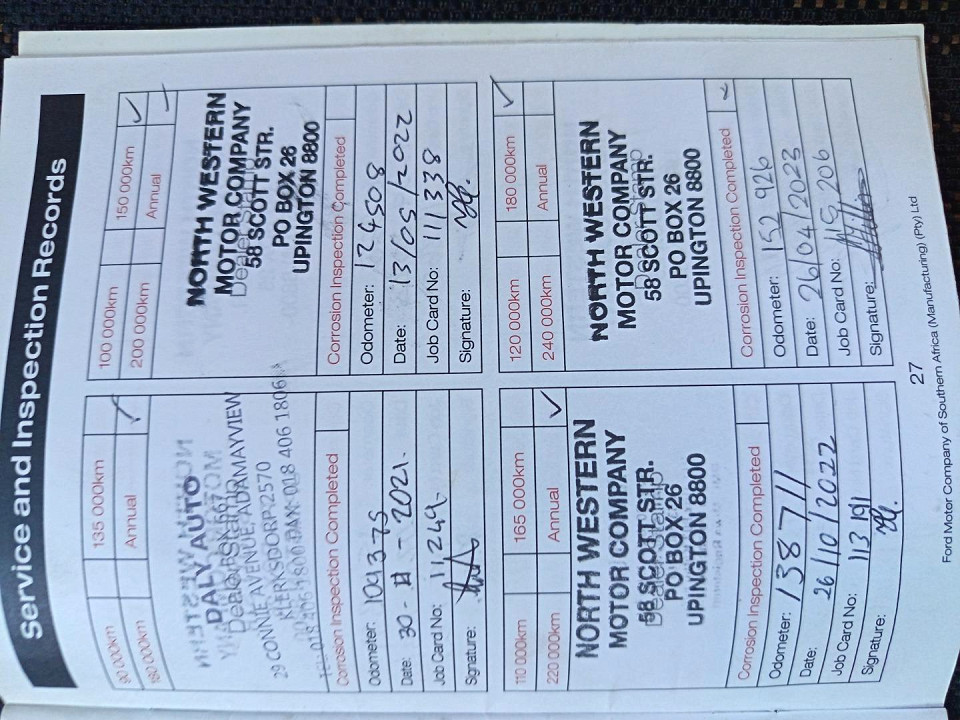 Service and Inspection Records
90 000km 135 000km
180 000km Annual ✓
DALY AUTO
Dealer Stamp
29 CONNIE AVENUE, ADAMAYVIEW
KLERKSDORP 2570
018 406 1806
Corrosion Inspection Completed
Odometer: 109375
Date: 30 - 11 - 2021.
Job Card No: 11249
Signature:
100 000km 150 000km ✓
200 000km Annual
NORTH WESTERN
MOTOR COMPANY
Dealer Stamp
58 SCOTT STR.
PO BOX 26
UPINGTON 8800
Corrosion Inspection Completed
Odometer: 124508
Date: 13/05/2022
Job Card No: 111338
Signature:
110 000km 165 000km
220 000km Annual ✓
NORTH WESTERN
MOTOR COMPANY
58 SCOTT STR.
Dealer Stamp
PO BOX 26
UPINGTON 8800
Corrosion Inspection Completed
Odometer: 138711
Date: 26/10/2022
Job Card No: 113191
Signature:
120 000km 180 000km ✓
240 000km Annual
NORTH WESTERN
MOTOR COMPANY
Dealer Stamp
58 SCOTT STR.
PO BOX 26
UPINGTON 8800
Corrosion Inspection Completed ✓
Odometer: 152 926
Date: 26/04/2023
Job Card No: 115206
Signature:
27
Ford Motor Company of Southern Africa (Manufacturing) (Pty) Ltd